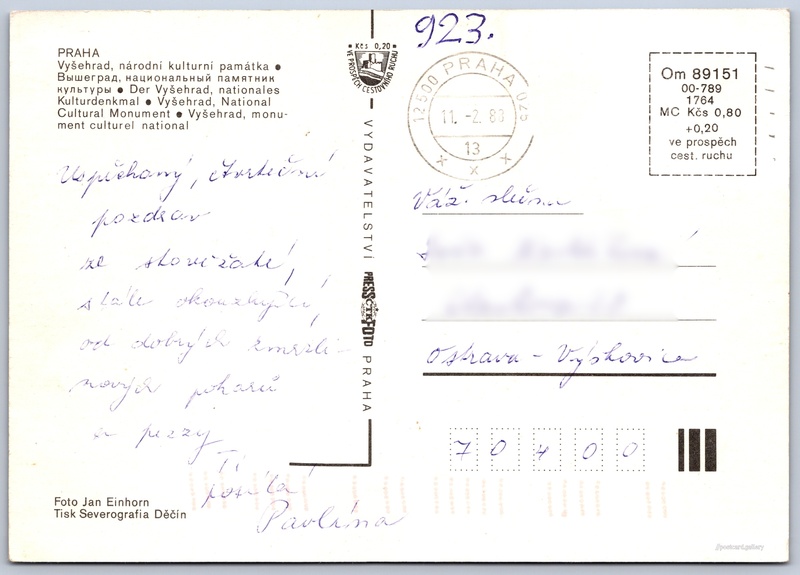 PRAHA
Vyšehrad, národní kulturní památka ●
Вышеград, национальный памятник
культуры ● Der Vyšehrad, nationales
Kulturdenkmal ● Vyšehrad, National
Cultural Monument ● Vyšehrad, monu-
ment culturel national
Uspěchaný, čtvrteční
pozdrav
ze stověžaté,
stále okouzlující,
od dobrých zmrzli-
nových pohárů
a pizzy
Ti
posílá
Pavlína
Foto Jan Einhorn
Tisk Severografia Děčín
Kčs 0,20
VE PROSPĚCH CESTOVNÍHO RUCHU
VYDAVATELSTVÍ
PRESSFOTO
ČTK
PRAHA
923.
12000 PRAHA 025
11. -2. 83
13
Om 89151
00-789
1764
MC Kčs 0,80
+0,20
ve prospěch
cest. ruchu
Váž. slečna
Ostrava - Výškovice
70400
//postcard.gallery